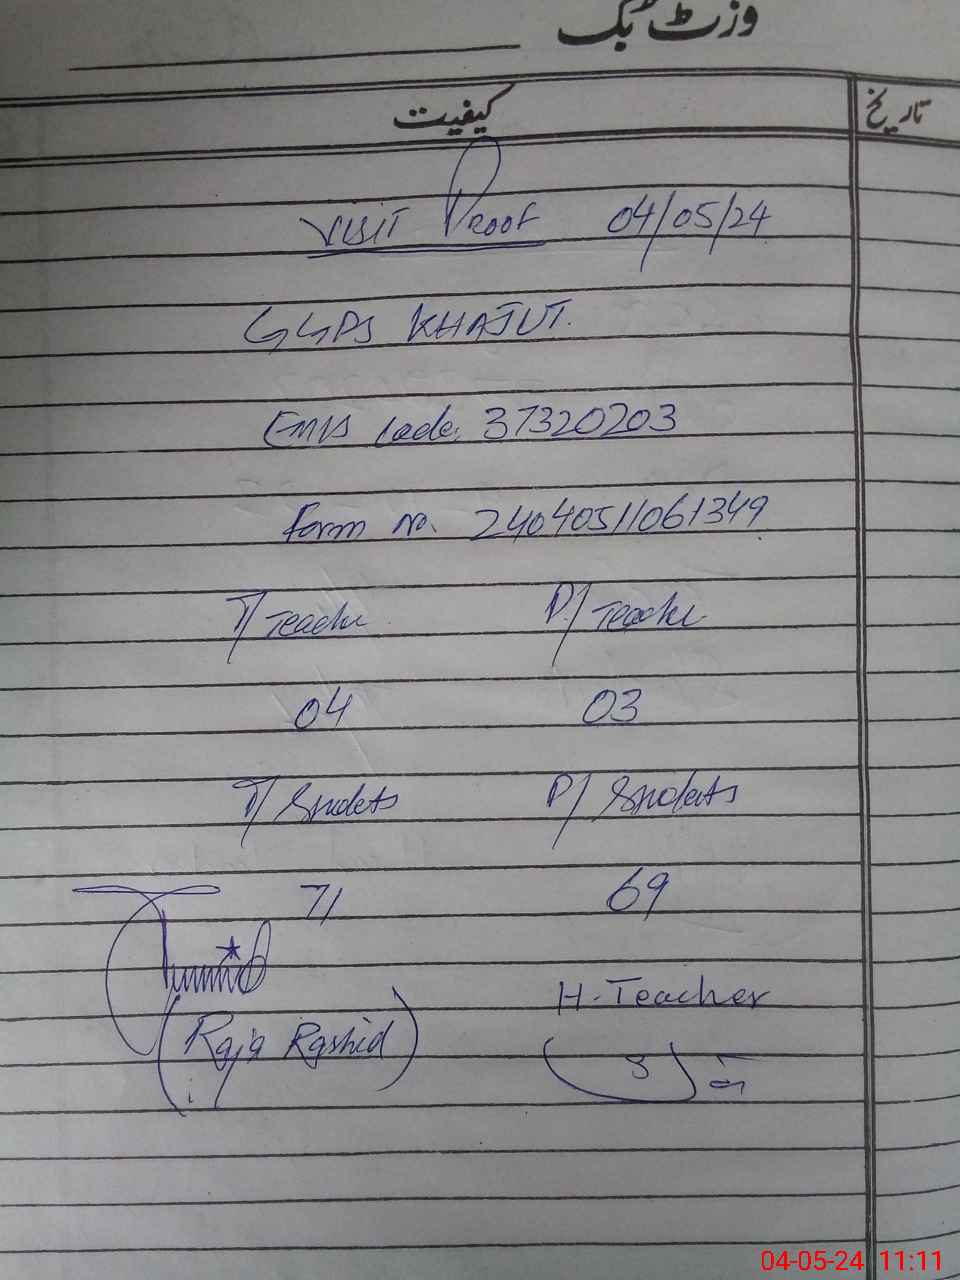 وزٹ بک
کیفیت تاریخ
VISIT Proof 04/05/24
GGPS KHAJUT.
EMIS Code: 37320203
Form No. 24040511061349
T/Teacher P/Teacher
04 03
T/Students P/Students
71 69
H-Teacher
(Raja Rashid)
04-05-24 11:11